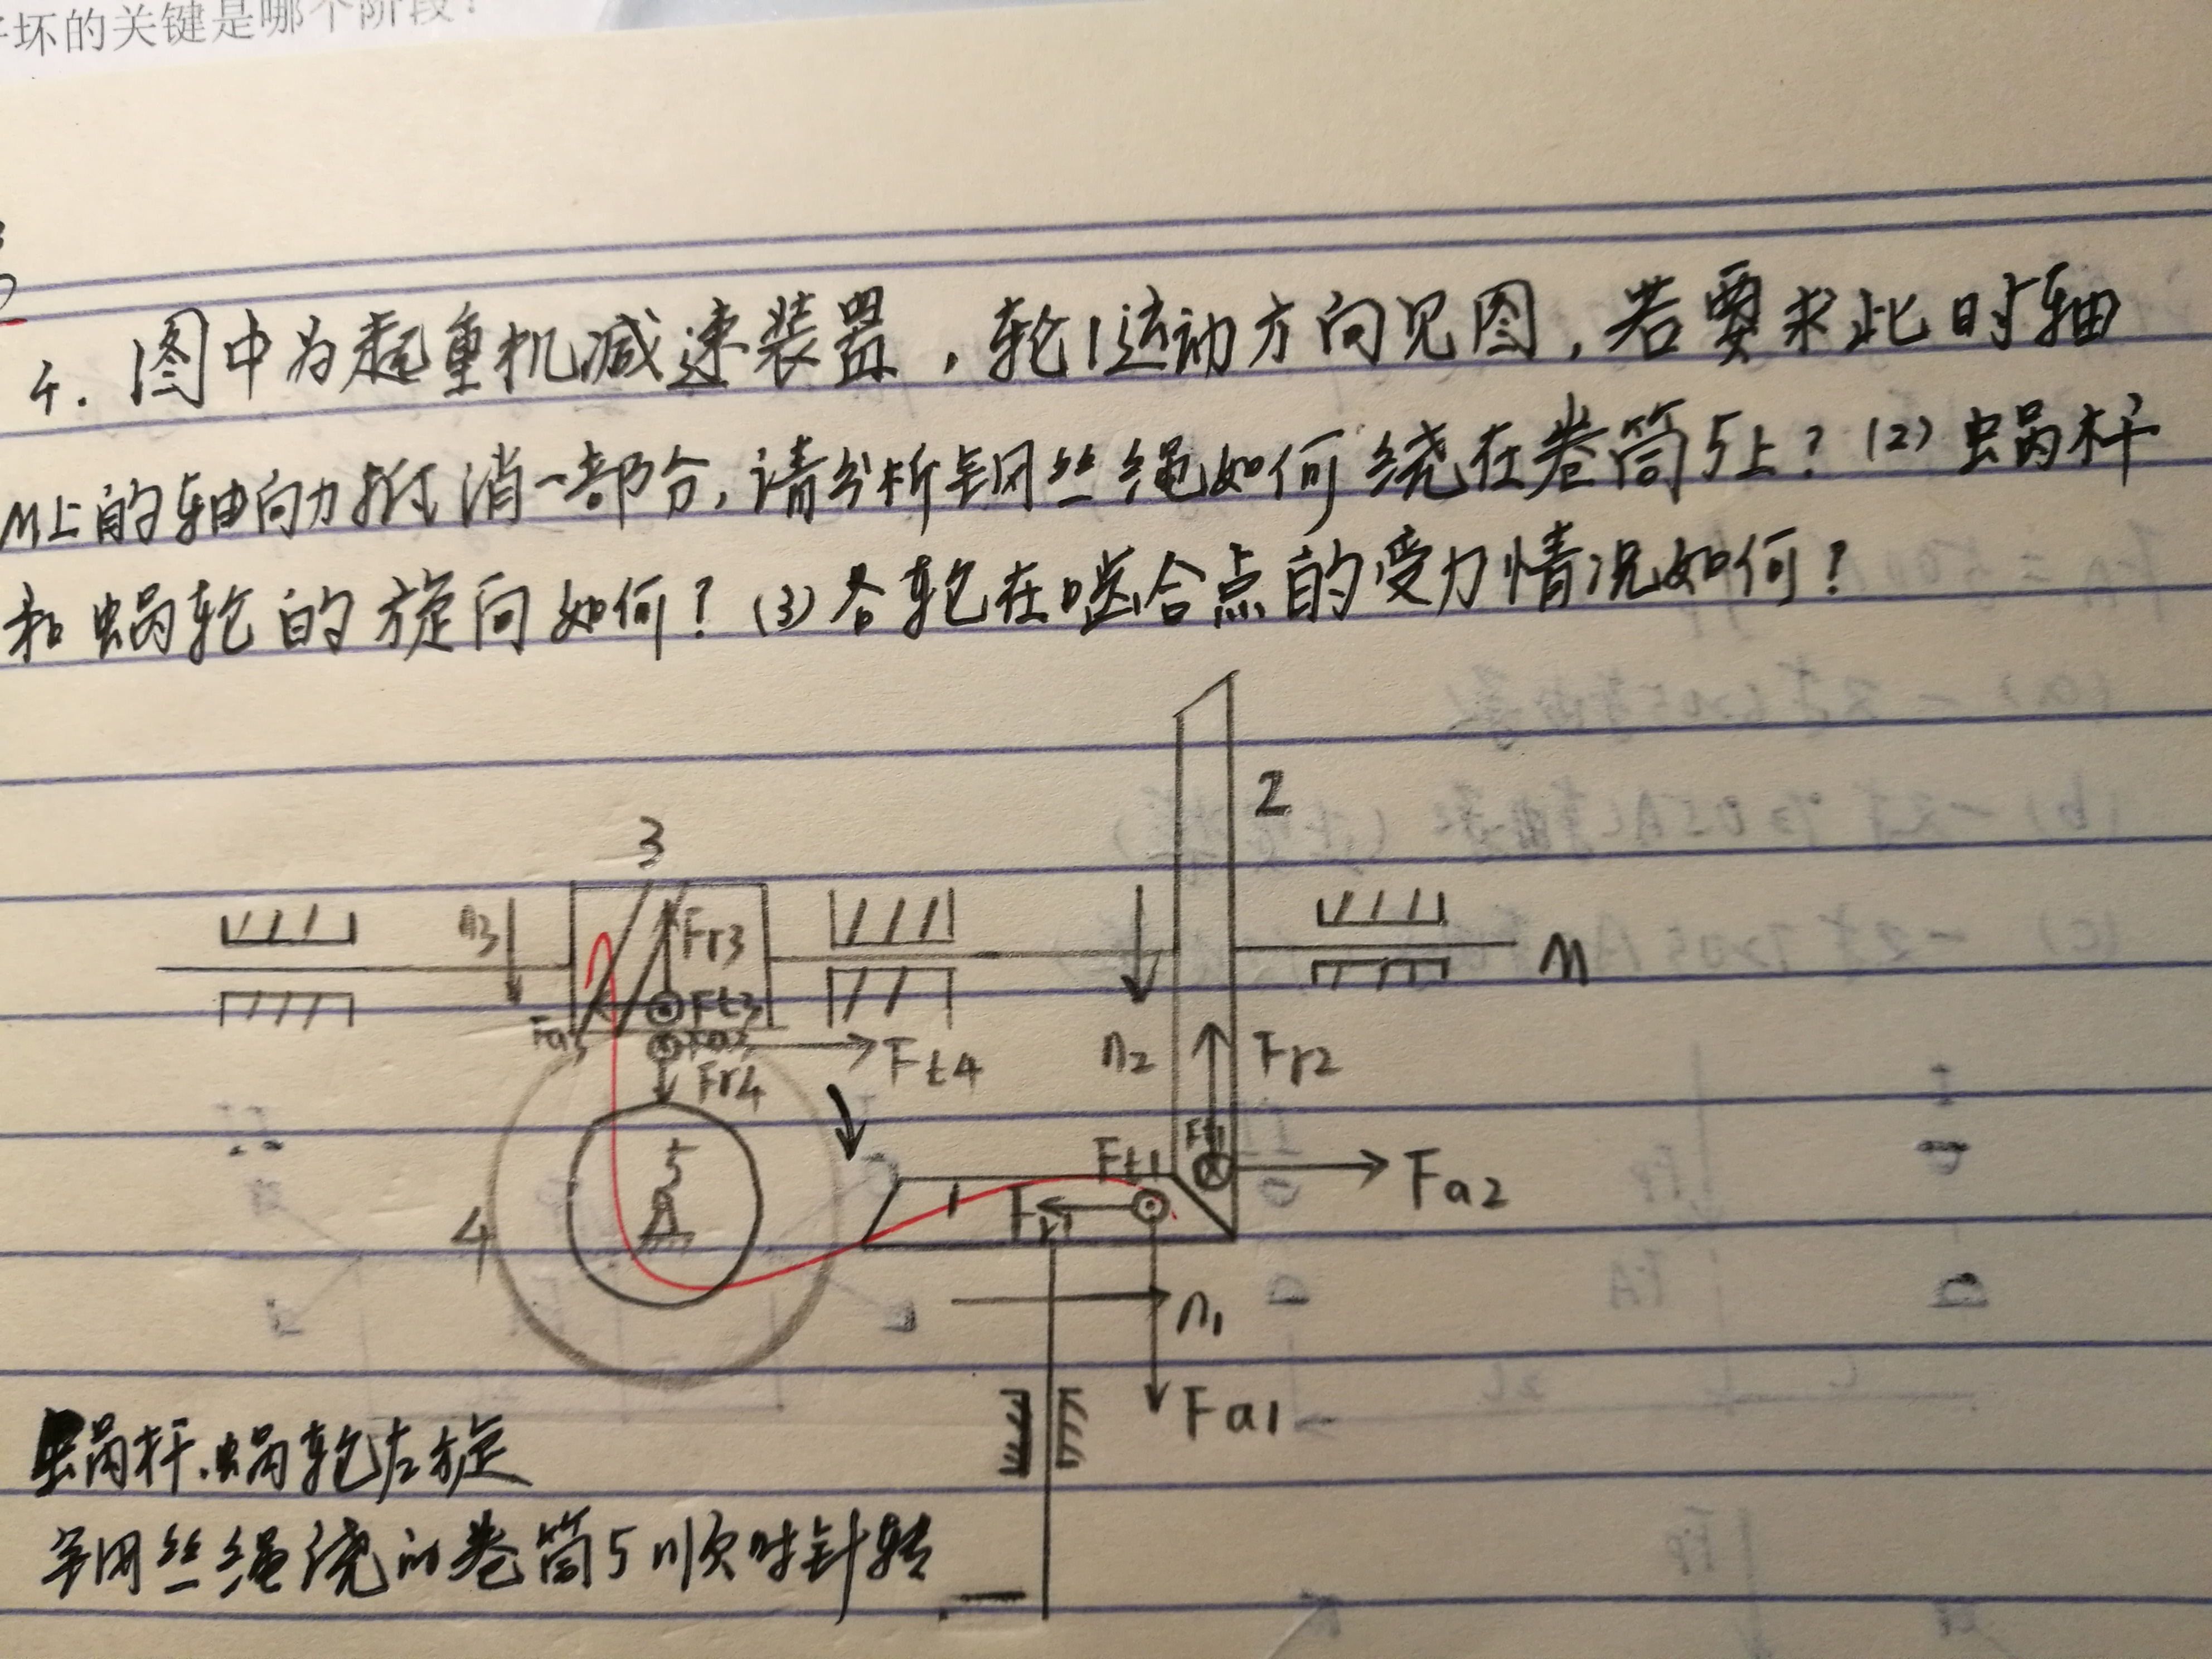 坏的关键是哪个阶段?
4. 图中为起重机减速装置,轮1运动方向见图,若要求此时轴
M上的轴向力抵消一部分,请分析钢丝绳如何绕在卷筒5上?(2)蜗杆
和蜗轮的旋向如何?(3)各轮在啮合点的受力情况如何?
2
3
n3
Fr3
M
Ft3
Fa3
Ft4
Fr4
n2
Fr2
5
4
1
Ft1
Fr1
Fa2
n1
Fa1
蜗杆.蜗轮右旋
钢丝绳绕的卷筒5顺时针转